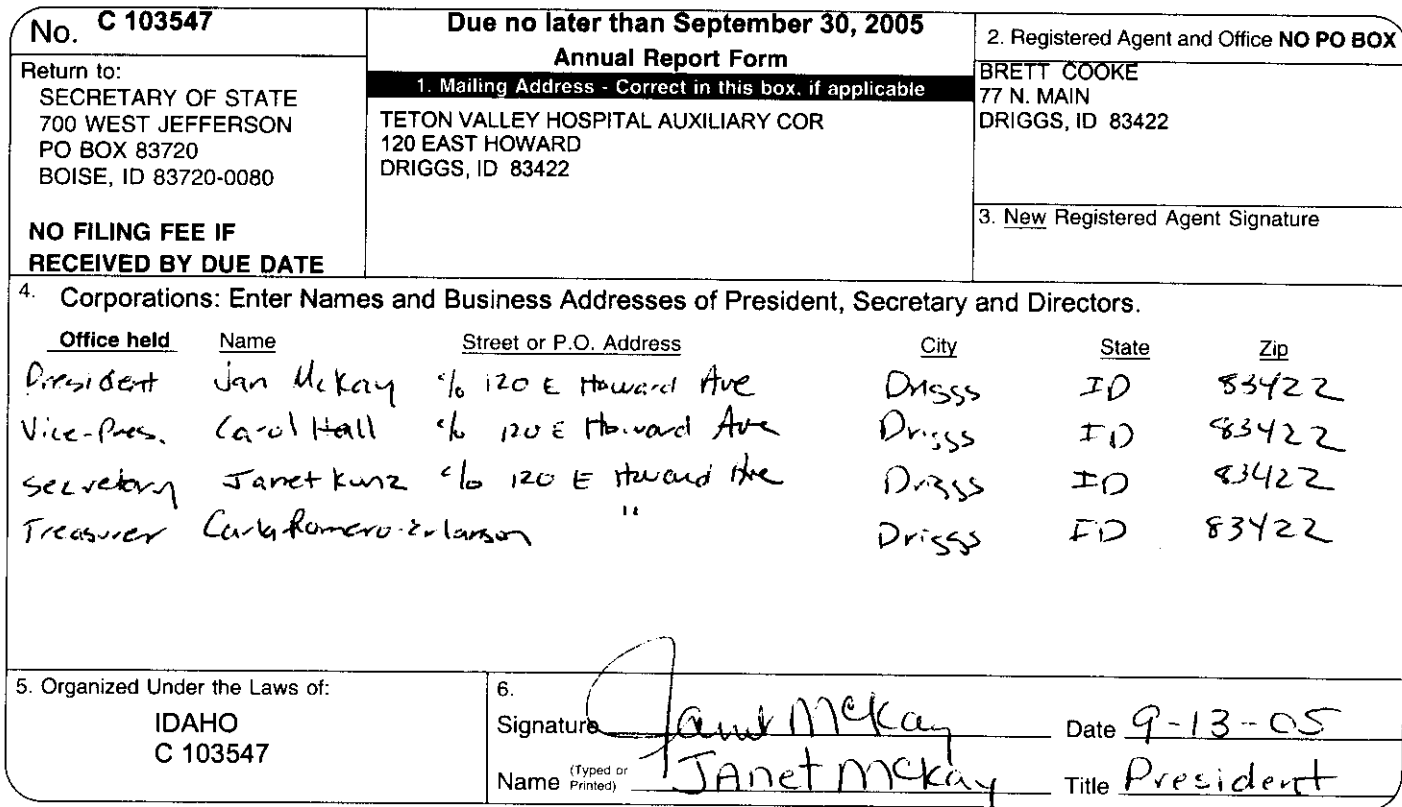 No. C 103547
Return to:
SECRETARY OF STATE
700 WEST JEFFERSON
PO BOX 83720
BOISE, ID 83720-0080
NO FILING FEE IF
RECEIVED BY DUE DATE
Due no later than September 30, 2005
Annual Report Form
1. Mailing Address - Correct in this box, if applicable
TETON VALLEY HOSPITAL AUXILIARY COR
120 EAST HOWARD
DRIGGS, ID 83422
2. Registered Agent and Office NO PO BOX
BRETT COOKE
77 N. MAIN
DRIGGS, ID 83422
3. New Registered Agent Signature
4. Corporations: Enter Names and Business Addresses of President, Secretary and Directors.
Office held Name Street or P.O. Address City State Zip
President Jan McKay c/o 120 E Howard Ave Driggs ID 83422
Vice-Pres. Carol Hall c/o 120 E Howard Ave Driggs ID 83422
Secretary Janet Kunz c/o 120 E Howard Ave Driggs ID 83422
Treasurer Carla Romero- " Driggs ID 83422
5. Organized Under the Laws of:
IDAHO
C 103547
6.
Signature Janet McKay Date 9-13-05
Name (Typed or Printed) JAnet McKay Title President